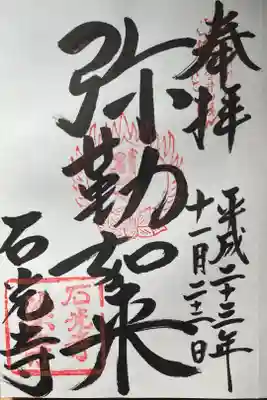 奉拝
平成二十三年
十一月二十三日
弥勒如来
石光寺
石光寺